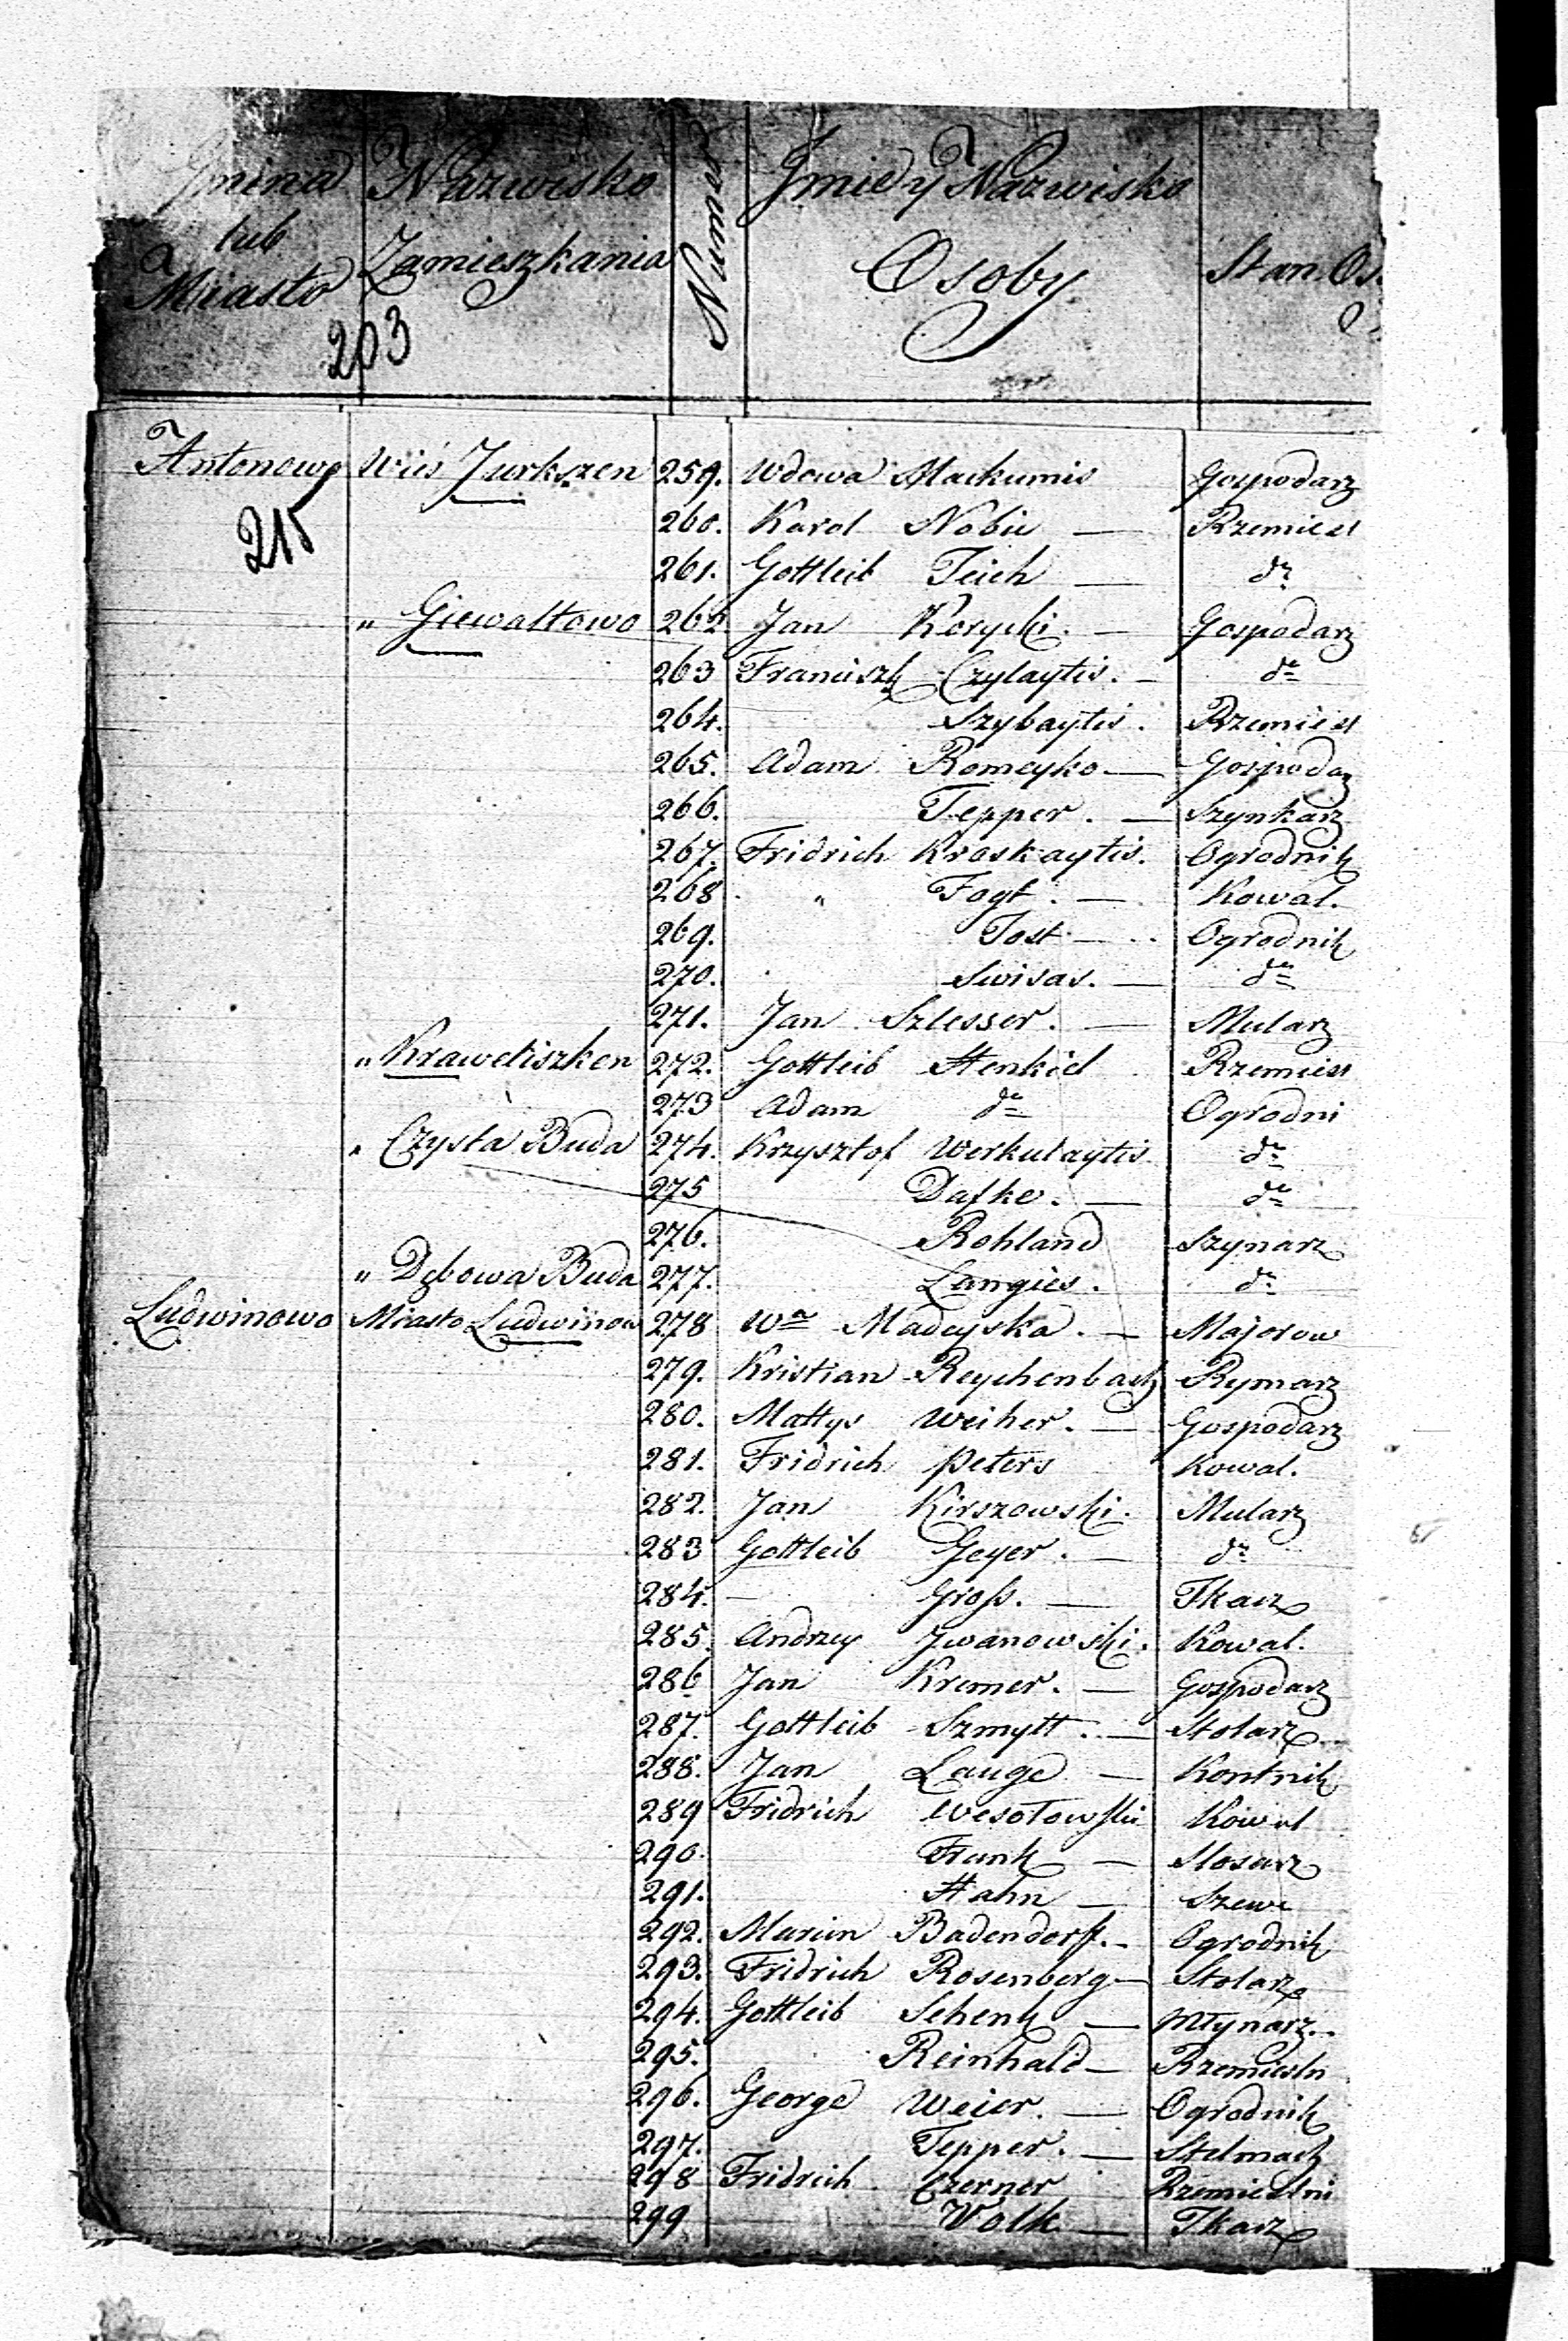 Gmina Nazwisko Numer Jmie y Nazwisko
lub Zamieszkania Osoby Stan Os
Miasto
203
Antonowo Wieś Jurkszen 259. Wdowa Mackumis Gospodarz
215
260. Karol Nobie — Rzemiesl
261. Gottleib Teich — do
" Giewałtowo 262. Jan Korycki. — Gospodarz
263 Franciszk Czylaytis. — do
264. Szybaytis. Rzemiesl
265. Adam Romeyko — Gospodaz
266. Tepper. — Szynkarz
267. Fridrich Kroskaytis. Ogrodnik
268 " Fogt. — Kowal.
269. Jost — Ogrodnik
270. Swisas. — do
271. Jan Szlesser. — Mularz
" Kraweliszken 272. Gottleib Henkiel Rzemiesl
273 Adam do Ogrodni
" Czysta Buda 274. Krzysztof Werkulaytis do
275 Dafke. — do
276. Rohland Szynarz
" Dębowa Buda 277. Langies. do
Ludwinowo Miasto Ludwinow 278 Wa Madeyska. — Majorow
279. Kristian Reychenbach Rymarz
280. Mattys Weiher. — Gospodarz
281. Fridrich Peters Kowal.
282. Jan Kirszowski. Mularz
283 Gottleib Geyer. — do
284. — Gross. — Tkacz
285. Andrzey Jwanowski. Kowal.
286 Jan Kremer. — Gospodarz
287. Gottleib Szmytt. — Stolarz
288. Jan Lange — Kontnik
289 Fridrich Wesołowski Kowal
290. Frank — Slosarz
291. Hahn — Szewc
292. Marcin Badendorff. — Ogrodnik
293. Fridrich Rosenberg — Stolarz
294. Gottleib Schenk — Młynarz.
295. Reinhald — Rzemiesln
296. George Weier. — Ogrodnik
297. Tepper. — Stelmach
298 Fridrich Czerner Rzemieslni
299 Volk — Tkacz